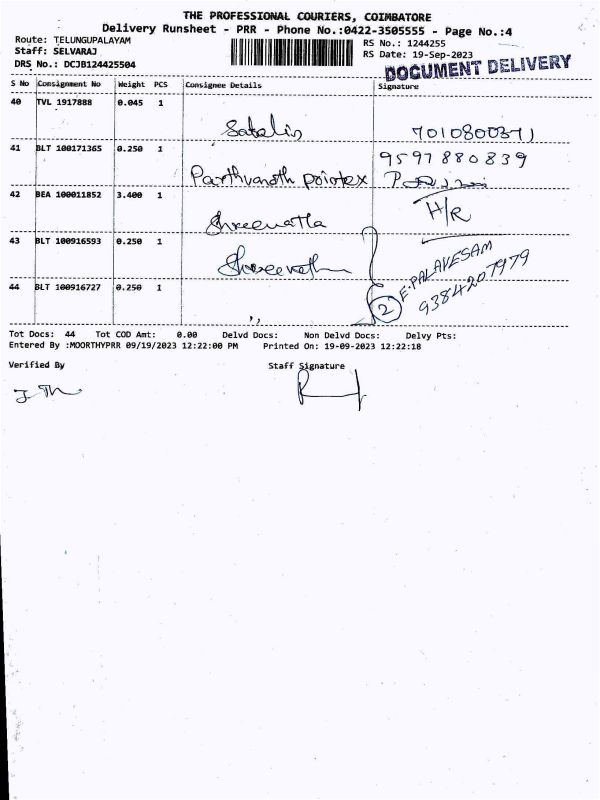 THE PROFESSIONAL COURIERS, COIMBATORE
Delivery Runsheet - PRR - Phone No.:0422-3505555 - Page No.:4
Route: TELUNGUPALAYAM
Staff: SELVARAJ
DRS No.: DCJB124425504
RS No.: 1244255
RS Date: 19-Sep-2023
DOCUMENT DELIVERY
S No Consignment No Weight PCS Consignee Details Signature
40 TVL 1917888 0.045 1
7010800371
41 BLT 100171365 0.250 1
9597880839
42 BEA 100011852 3.400 1
H/R
43 BLT 100916593 0.250 1
E.PALAVESAM
9384207979
44 BLT 100916727 0.250 1
2
Tot Docs: 44 Tot COD Amt: 0.00 Delvd Docs: Non Delvd Docs: Delvy Pts:
Entered By :MOORTHYPRR 09/19/2023 12:22:00 PM Printed On: 19-09-2023 12:22:18
Verified By Staff Signature